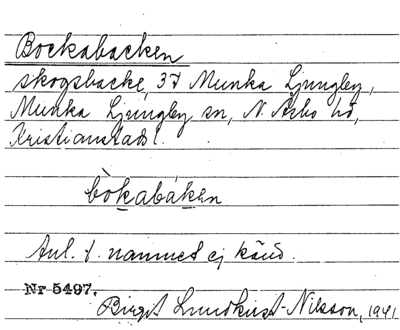 Bockabacken
skogsbacke, 37 Munka Ljungby,
Munka Ljungby sn, N. Åsbo hd,
Kristianstads l.
bòkabáken
Anl. t. namnet ej känd.
Nr 5497.
Birgit Lundkvist-Nilsson, 1941